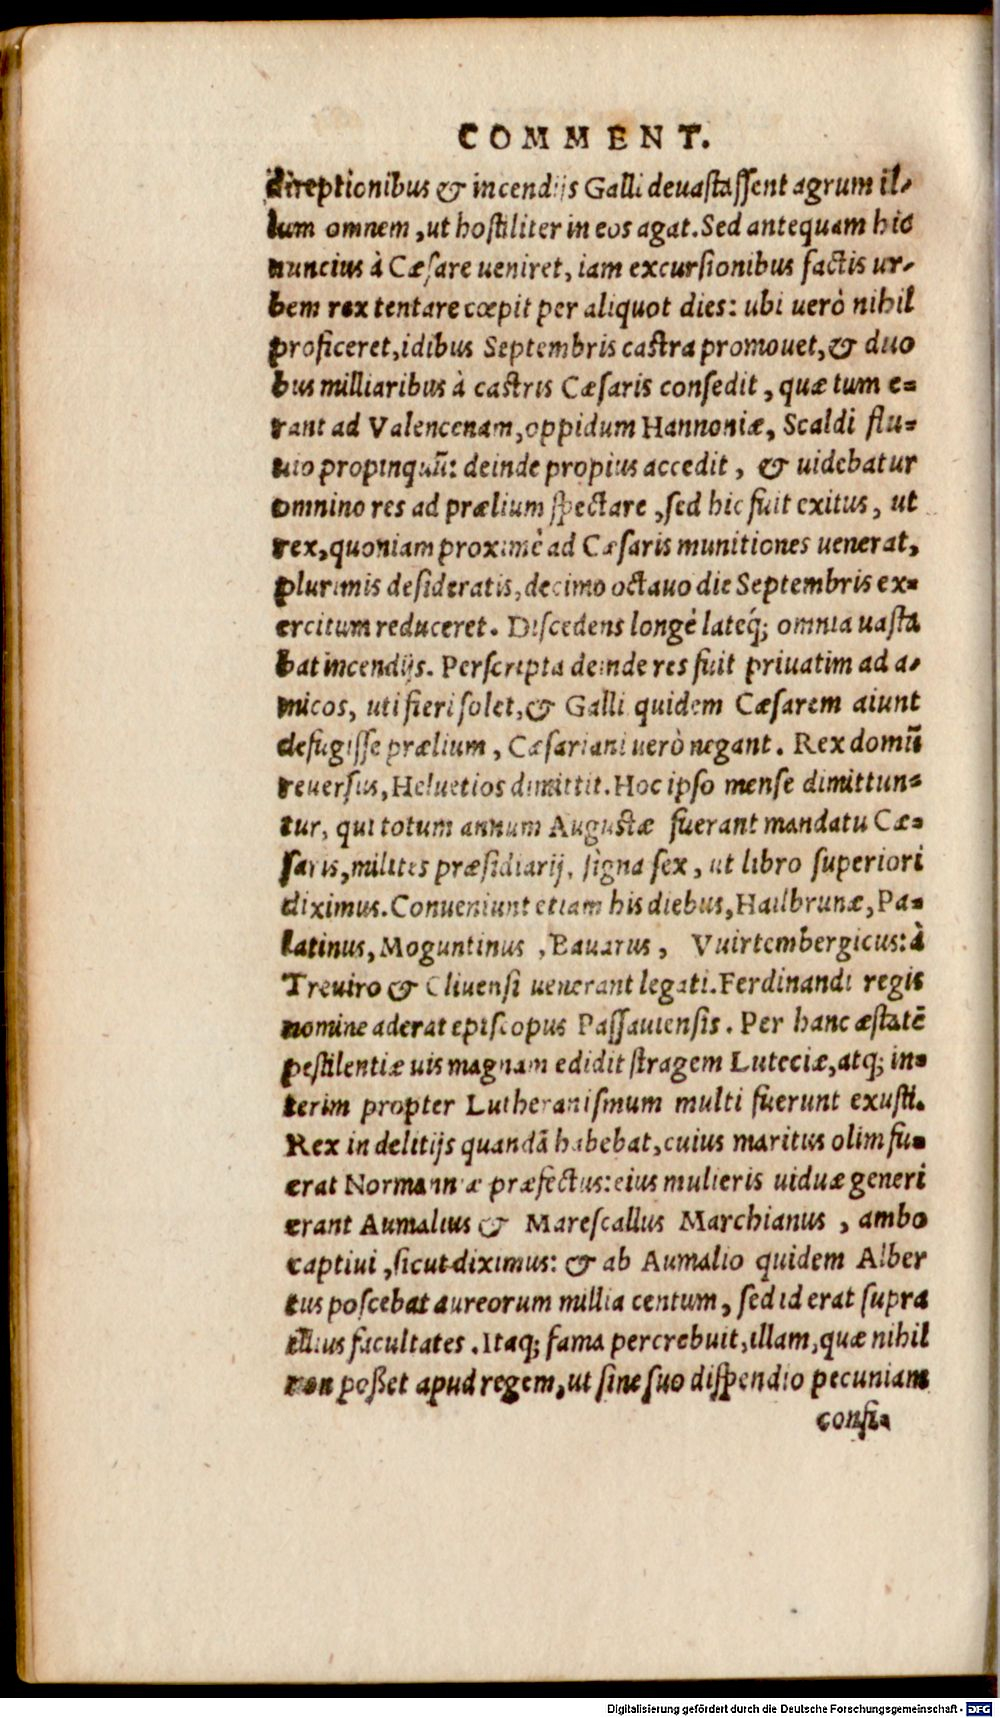 COMMENT.
direptionibus & incendijs Galli deuastassent agrum il-
lum omnem, ut hostiliter in eos agat. Sed antequam hic
nuncius à Cæsare ueniret, iam excursionibus factis ur-
bem rex tentare cœpit per aliquot dies: ubi uerò nihil
proficeret, idibus Septembris castra promouet, & duo
bus milliaribus à castris Cæsaris consedit, quæ tum e-
rant ad Valencenam, oppidum Hannoniæ, Scaldi flu-
uio propinquū: deinde propius accedit, & uidebatur
omnino res ad prælium spectare, sed hic fuit exitus, ut
rex, quoniam proximè ad Cæsaris munitiones uenerat,
plurimis desideratis, decimo octauo die Septembris ex-
ercitum reduceret. Discedens longè lateq́; omnia uasta
bat incendijs. Perscripta deinde res fuit priuatim ad a-
micos, uti fieri solet, & Galli quidem Cæsarem aiunt
defugisse prælium, Cæsariani uerò negant. Rex domū
reuersus, Heluetios dimittit. Hoc ipso mense dimittun-
tur, qui totum annum Augustæ fuerant mandatu Cæ-
saris, milites præsidiarij, signa sex, ut libro superiori
diximus. Conueniunt etiam his diebus, Hailbrunæ, Pa-
latinus, Moguntinus, Bauarus, Vuirtembergicus: à
Treuiro & Cliuensi uenerant legati. Ferdinandi regis
nomine aderat episcopus Passauiensis. Per hanc æstatē
pestilentiæ uis magnam edidit stragem Luteciæ, atq; in-
terim propter Lutheranismum multi fuerunt exusti.
Rex in delitijs quandā habebat, cuius maritus olim fu-
erat Normanniæ præfectus: eius mulieris uiduæ generi
erant Aumalius & Marescallus Marchianus, ambo
captiui, sicut diximus: & ab Aumalio quidem Alber
tus poscebat aureorum millia centum, sed id erat supra
illius facultates. Itaq; fama percrebuit, illam, quæ nihil
non posset apud regem, ut sine suo dispendio pecuniam
confi-
Digitalisierung gefördert durch die Deutsche Forschungsgemeinschaft - DFG